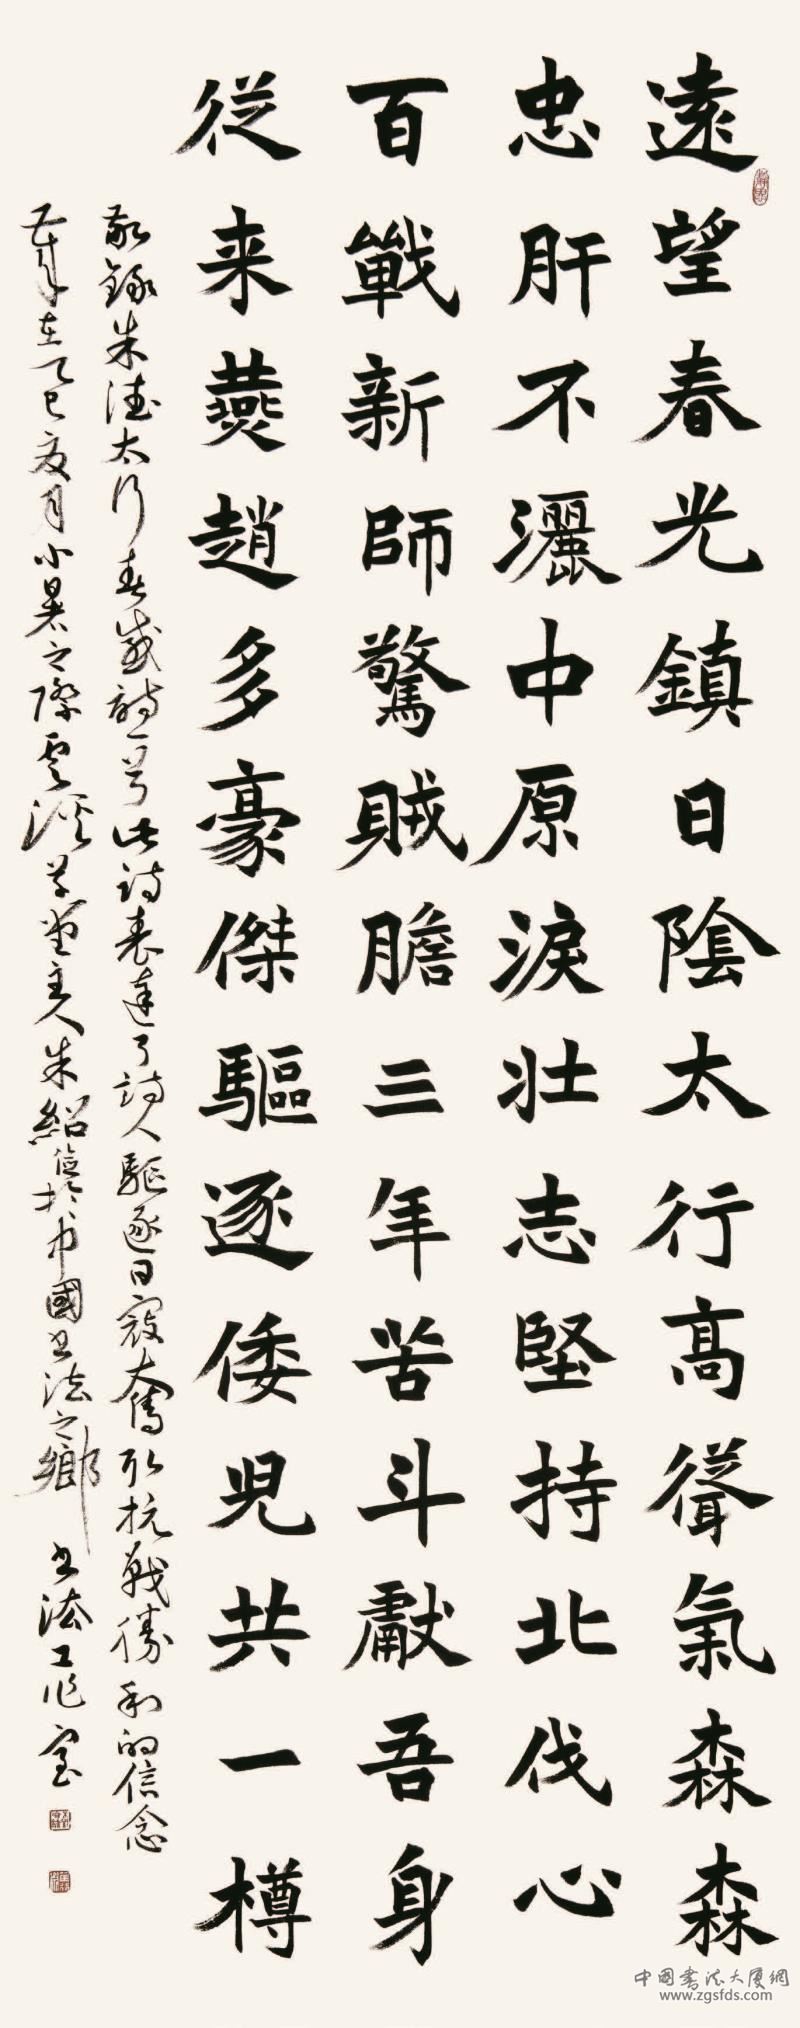 遠望春光鎮日陰太行高聳氣森森
忠肝不灑中原淚壮志堅持北伐心
百戰新師驚賊膽三年苦斗獻吾身
從来燕趙多豪傑驅逐倭児共一樽
敬錄朱德太行春感詩一首此詩表達了詩人驅逐日寇奮取抗戰勝利的信念
在乙巳夏月小暑之際雲溪草堂主人朱紹於中國书法之鄉书法工作室
中國書法大厦網
www.zgsfds.com